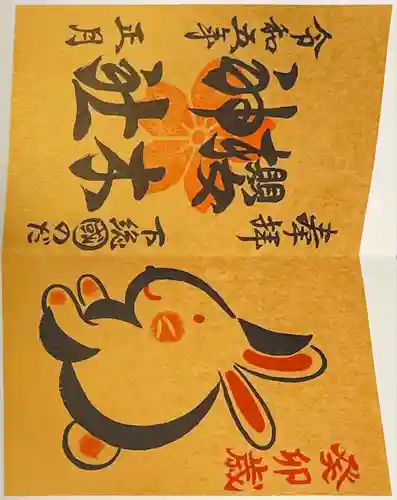 癸卯歳
奉拝
下総国のだ
櫻木
神社
令和五年
正月